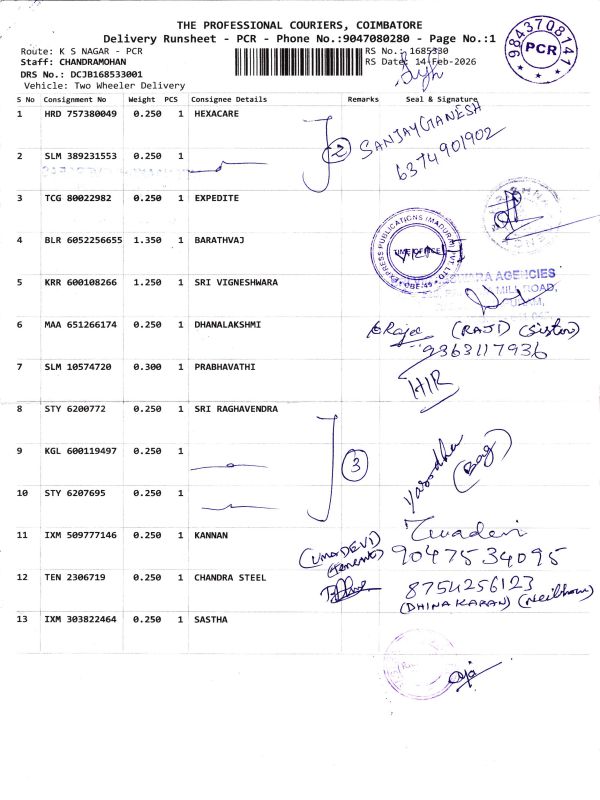 THE PROFESSIONAL COURIERS, COIMBATORE
Delivery Runsheet - PCR - Phone No.:9047080280 - Page No.:1
Route: K S NAGAR - PCR
RS No.: 1685330
Staff: CHANDRAMOHAN
RS Date: 14-Feb-2026
DRS No.: DCJB168533001
Vehicle: Two Wheeler Delivery
9843708141
PCR
S No Consignment No Weight PCS Consignee Details Remarks Seal & Signature
1 HRD 757380049 0.250 1 HEXACARE
SANJAY GANESH
6374901902
2
2 SLM 389231553 0.250 1
3 TCG 80022982 0.250 1 EXPEDITE
4 BLR 6052256655 1.350 1 BARATHVAJ
EXPRESS PUBLICATIONS (MADURAI) PVT. LTD
TIME OFFICE
5 KRR 600108266 1.250 1 SRI VIGNESHWARA
AGENCIES
MILL ROAD,
6 MAA 651266174 0.250 1 DHANALAKSHMI
(RAJI) (Sister)
9363117936
7 SLM 10574720 0.300 1 PRABHAVATHI
HIR
8 STY 6200772 0.250 1 SRI RAGHAVENDRA
9 KGL 600119497 0.250 1
3
Yasodha
(Bag)
10 STY 6207695 0.250 1
11 IXM 509777146 0.250 1 KANNAN
(UmaDEVI)
Umadevi
9047534095
12 TEN 2306719 0.250 1 CHANDRA STEEL
8754256123
(DHINAKARAN)
13 IXM 303822464 0.250 1 SASTHA